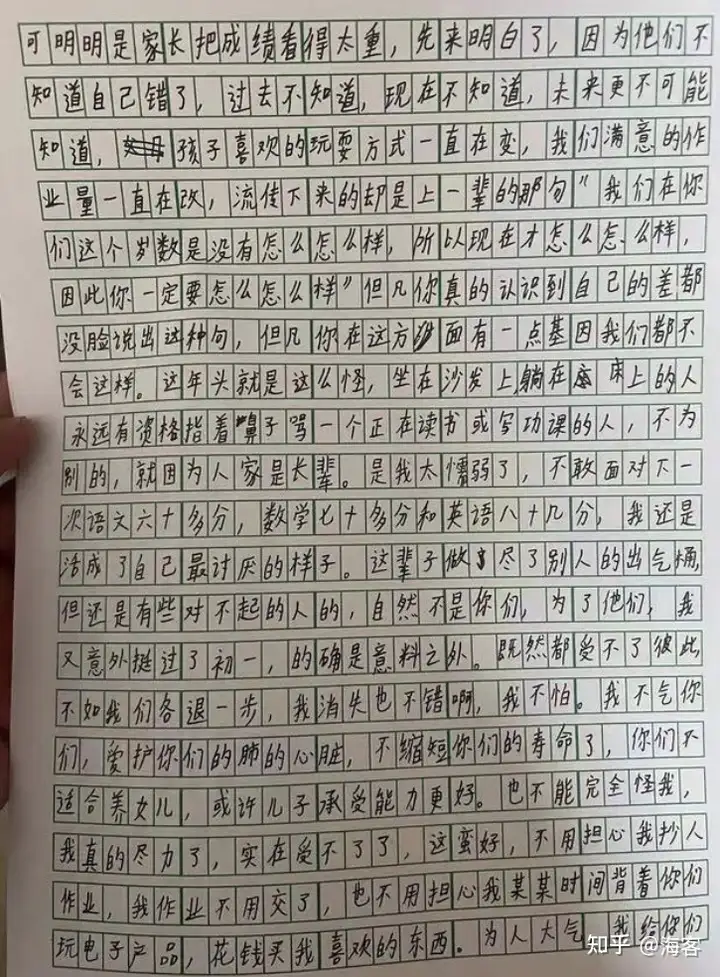 可明明是家长把成绩看得太重，先来明白了，因为他们不
知道自己错了，过去不知道，现在不知道，未来更不可能
知道，孩子喜欢的玩耍方式一直在变，我们满意的作
业量一直在改，流传下来的却是上一辈的那句“我们在你
们这个岁数是没有怎么怎么样，所以现在才怎么怎么样，
因此你一定要怎么怎么样”但凡你真的认识到自己的差都
没脸说出这种句，但凡你在这方面有一点基因我们都不
会这样。这年头就是这么怪，坐在沙发上躺在床上的人
永远有资格指着鼻子骂一个正在读书或写功课的人，不为
别的，就因为人家是长辈。是我太懦弱了，不敢面对下一
次语文六十多分，数学七十多分和英语八十几分，我还是
活成了自己最讨厌的样子。这辈子做尽了别人的出气桶，
但还是有些对不起的人的，自然不是你们，为了他们，我
又意外挺过了初一，的确是意料之外。既然都受不了彼此，
不如我们各退一步，我消失也不错啊，我不怕。我不气你
们，爱护你们的肺的心脏，不缩短你们的寿命了，你们不
适合养女儿，或许儿子承受能力更好。也不能完全怪我，
我真的尽力了，实在受不了了，这蛮好，不用担心我抄人
作业，我作业不用交了，也不用担心我某某时间背着你们
玩电子产品，花钱买我喜欢的东西。为人大气，我给你们
知乎 @海客